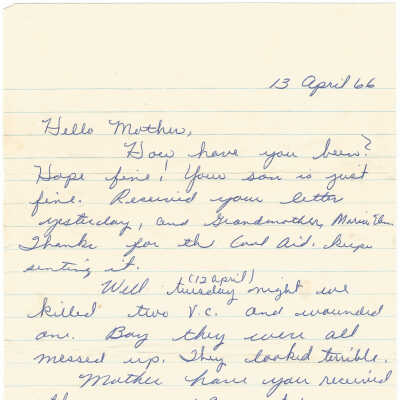 13 April 66
Hello Mother,
How have you been?
Hope fine! Your son is just
fine. Received your letter
yesterday, and Grandmother, Maria's
Thanks for th Cool Aid. keep
senting it.
(12 April)
Well tuesday night we
killed two V.C. and wounded
one. Boy they were all
messed up. They looked terrible.
Mother have you received